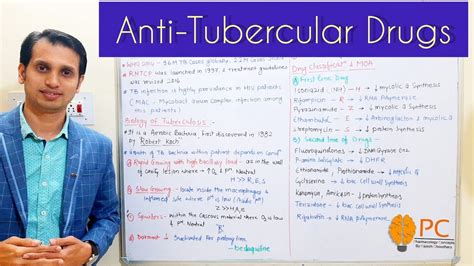 Anti-Tubercular Drugs
WHO 2014 - 9.6M TB Cases globally, 2.2M Cases
RNTCP was launched in 1997, & treatment guidelines
was revised 2016
TB infection is highly prevalence in HIV patients
(MAC - Mycobact avium Complex infection among
this patients)
Biology of Tuberculosis :-
It is a Aerobic Bacteria first discovered in 1882
by Robert Koch
of TB bacteria within patient depends on
a) Rapid Growing with high bacillary load - as in the wall
of cavity lesion where ↑ O₂ & pH Neutral
H>>R>E,S
b) Slow Growing - locate inside the macrophages &
inflamed site where pH is low (Acidic pH)
Z>>H,R,E
c) Spurters - Within the Caseous material where O₂ is low
& pH Neutral
"R"
d) Dormant - Inactivated for prolong time
- bedaquiline
Drug Classificat & MOA
a) First line Drug
Isoniazid (INH) → ↓ mycolic a Synthesis
Rifampicin → ↓ RNA Polymerase
Pyrazinamide → ↓ mycolic a Synthesis
Ethambutol E → ↓ Arabinogalacton & mycolic a
Streptomycin S → ↓ protein Synthesis
b) Second line of Drugs
Fluoroquinolones → ↓ DNA
P-amino Salicylate → ↓ DHFR
Ethionamide, Prothionamide → ↓ mycolic a Synthesis
Cycloserine → ↓ bac cell wall Synthesis
Kanamycin, Amikacin → ↓ protein Synthesis
Terizidone → ↓ bac cell wall Synthesis
Rifabutin → ↓ RNA polymerase
PC
Pharmacology Concepts
By Rajesh Choudhary